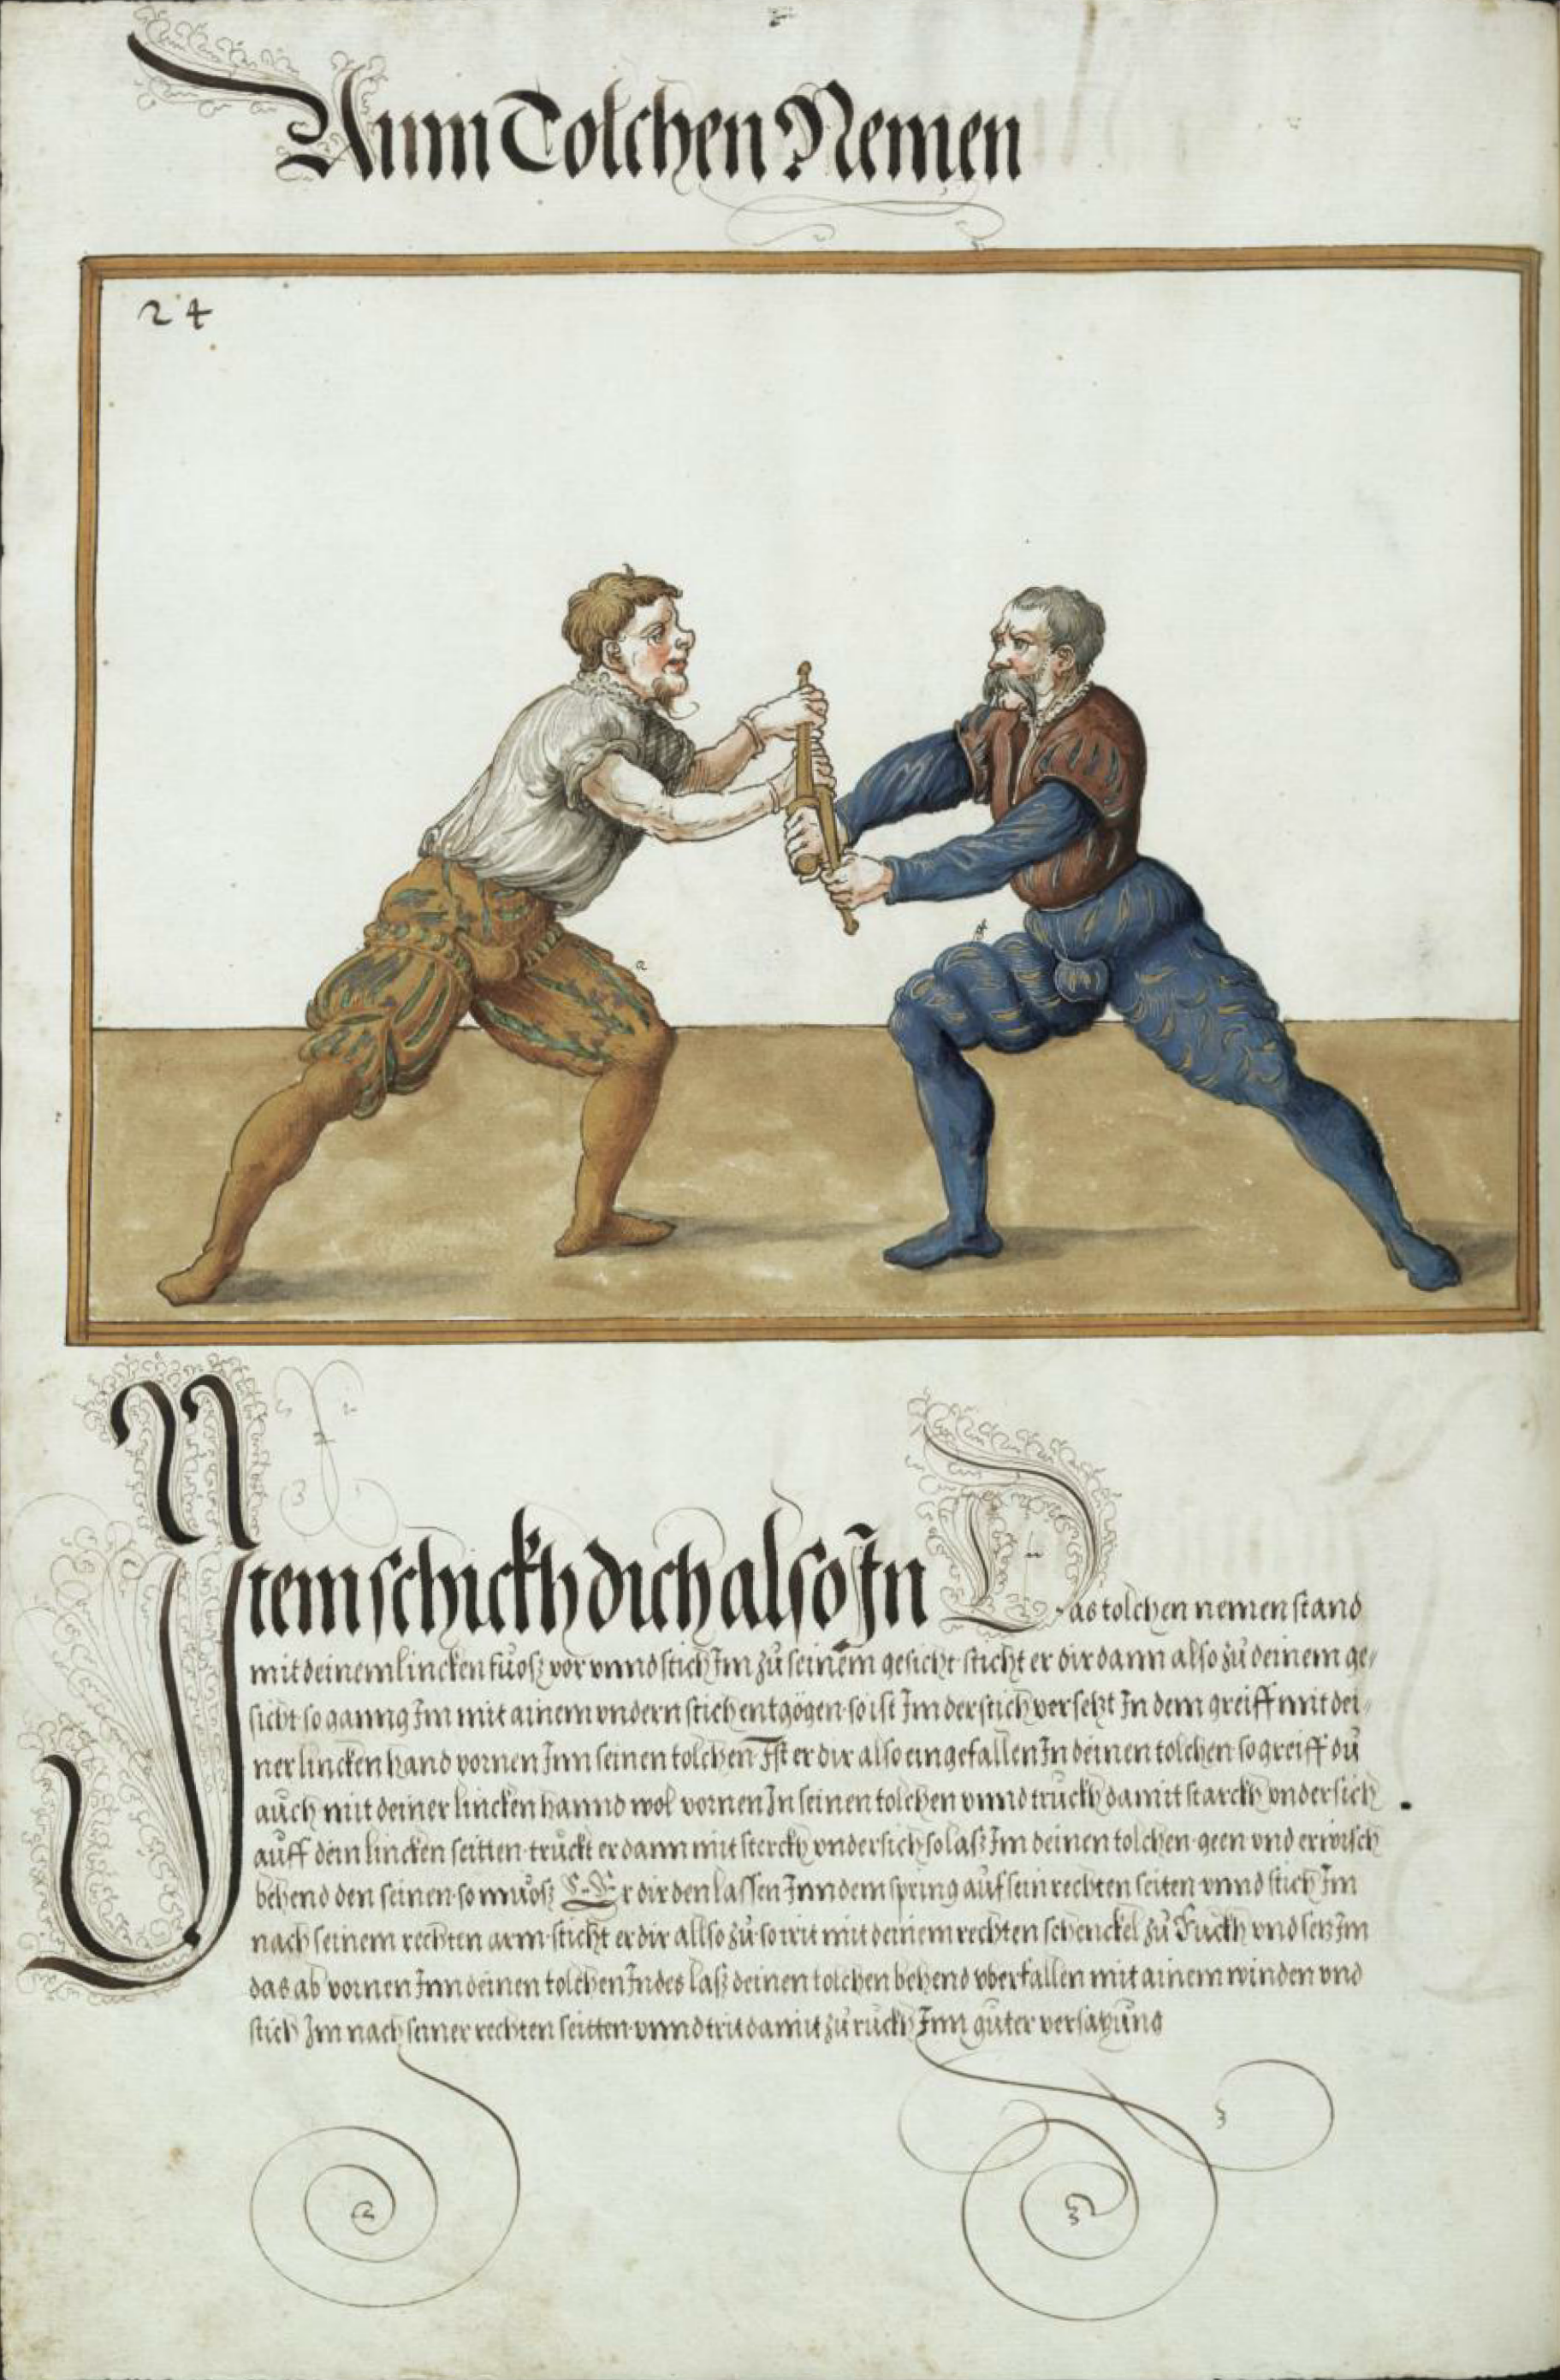 Ainn Tolchen Nemen
24
Item schickh dich also In Das tolchen nemen stand
mit deinem lincken fuosz vor vnnd stich Im zu seinem gesicht sticht er dir dann also zu deinem ge/
sicht so ganng Im mit ainem vndern stich entgögen so ist Im der stich versetzt In dem greiff mit dei/
ner lincken hand vornen Inn seinen tolchen Ist er dir also eingefallen In deinen tolchen so greiff du
auch mit deiner lincken hannd wol vornen In seinen tolchen vnnd truckh damit starckh vndersich
auff dein lincken seitten truckt er dann mit sterckh vndersich so lasz Im deinen tolchen geen vnd erwisch
behend den seinen so muosz Er dir den lassen Inn dem spring auf sein rechten seiten vnnd stich Im
nach seinem rechten arm sticht er dir allso zu so trit mit deinem rechten schenckel zu Ruckh vnd setz Im
das ab vornen Inn deinen tolchen Indes lasz deinen tolchen behend vberfallen mit ainem winden vnd
stich Im nach seiner rechten seitten vnnd trit damit zu ruckh Inn guter versatzung